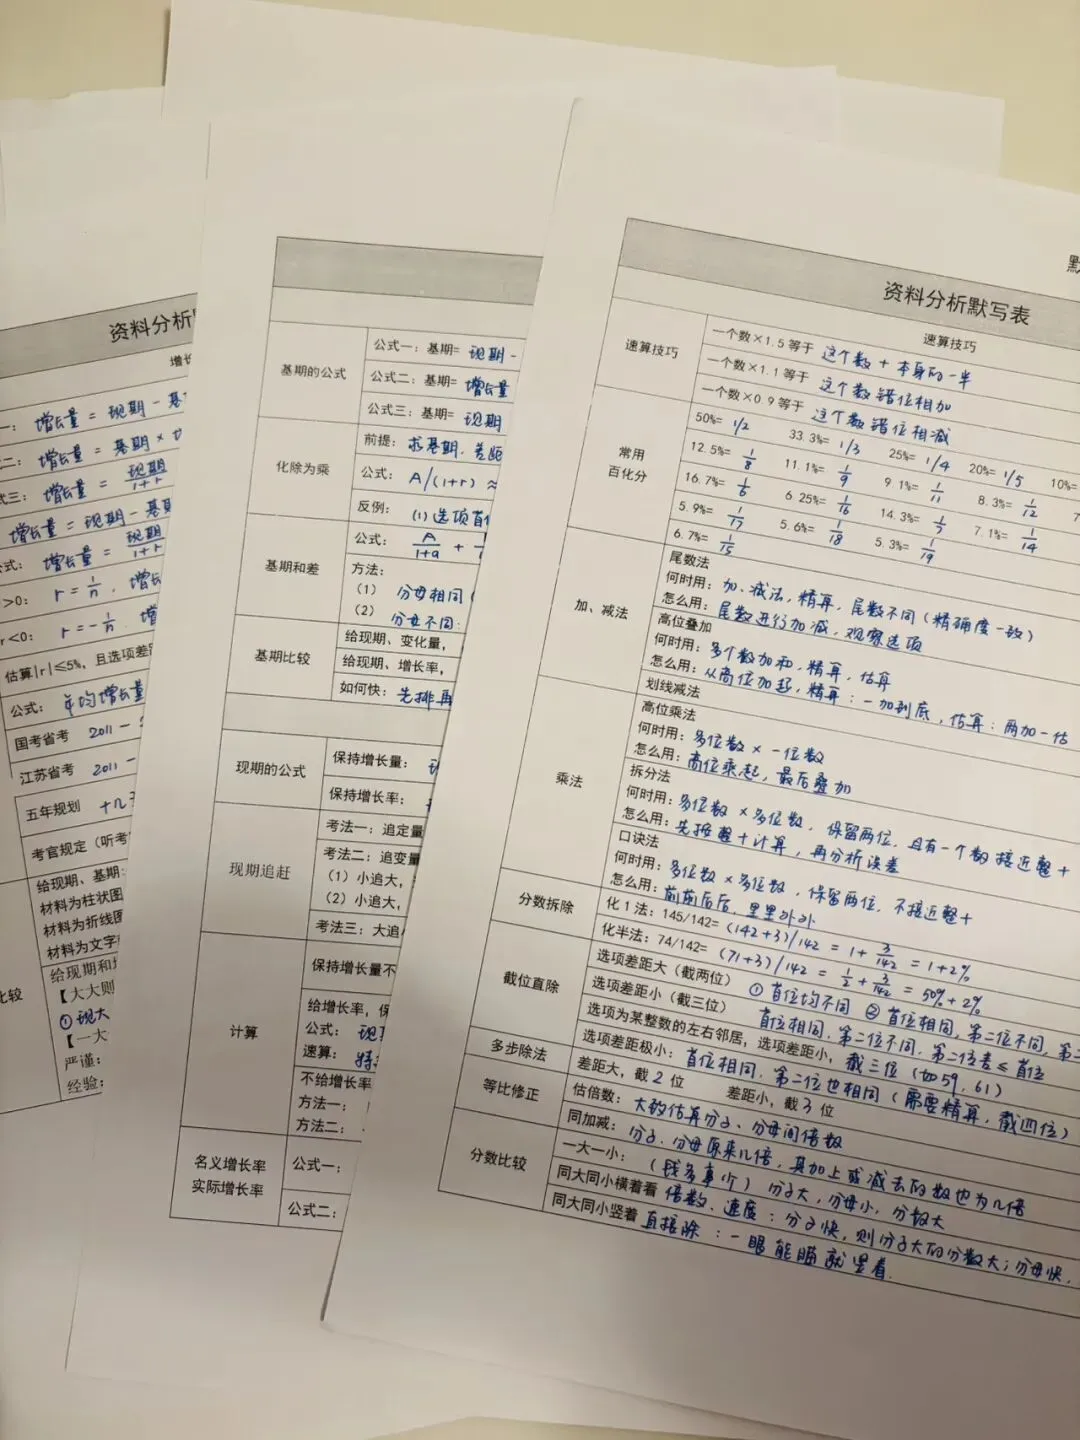 资料分析
增长
一: 增长量 = 现期 - 基
二: 增长量 = 基期 ×
式三: 增长量 = 现期/1+r
增长量 = 现期 - 基
公式: 增长量 = 现期/1+r
>0: r = 1/n, 增长
r<0: r = -1/n, 增
估算|r|≤5%, 且选项差
公式: 年均增长量
国考省考 2011 -
江苏省考 2011 -
五年规划 十几
考官规定（听考
比较
给现期、基期:
材料为柱状图
材料为折线图
材料为文字
给现期和
【大大则
①现大
【一大
严谨:
经验:
基期的公式
公式一: 基期= 现期 -
公式二: 基期= 增长量
公式三: 基期= 现期
化除为乘
前提: 求基期, 差距
公式: A/(1+r) ≈
反例: (1) 选项首
基期和差
公式: A/1+a +
方法:
（1） 分母相同
（2） 分母不同:
基期比较
给现期、变化量,
给现期、增长率,
如何快: 先排再
现期的公式
保持增长量:
保持增长率:
现期追赶
考法一: 追定量
考法二: 追变量
（1）小追大,
（2）小追大,
考法三: 大追
计算
保持增长量不
给增长率, 保
公式: 现
速算: 特
不给增长率
方法一:
方法二:
名义增长率
实际增长率
公式一:
公式二:
默
资料分析默写表
速算技巧
速算技巧
一个数×1.5等于 这个数 + 本身的一半
一个数×1.1等于 这个数错位相加
一个数×0.9等于 这个数错位相减
常用
百化分
50%= 1/2 33.3%= 1/3 25%= 1/4 20%= 1/5 10%=
12.5%= 1/8 11.1%= 1/9 9.1%= 1/11 8.3%= 1/12 7
16.7%= 1/6 6.25%= 1/16 14.3%= 1/7 7.1%= 1/14
5.9%= 1/17 5.6%= 1/18 5.3%= 1/19
6.7%= 1/15
加、减法
尾数法
何时用: 加、减法, 精算, 尾数不同（精确度一致）
怎么用: 尾数进行加减, 观察选项
高位叠加
何时用: 多个数加和, 精算, 估算
怎么用: 从高位加起, 精算: 一加到底, 估算: 两加一估
划线减法
乘法
高位乘法
何时用: 多位数 × 一位数
怎么用: 高位乘起, 最后叠加
拆分法
何时用: 多位数 × 多位数, 保留两位, 且有一个数接近整十
怎么用: 先按整十计算, 再分析误差
口诀法
何时用: 多位数 × 多位数, 保留两位, 不接近整十
怎么用: 前前后后, 里里外外
分数拆除
化1法: 145/142= (142+3)/142 = 1+ 3/142 = 1+2%
化半法: 74/142= (71+3)/142 = 1/2 + 3/142 = 50%+2%
截位直除
选项差距大（截两位） ①首位均不同 ②首位相同, 第二位不同, 第二
选项差距小（截三位） 首位相同, 第二位不同, 第二位差≤首位
选项为某整数的左右邻居, 选项差距小, 截三位（如59, 61）
选项差距极小: 首位相同, 第二位也相同（需要精算, 截四位）
多步除法
差距大, 截2位 差距小, 截3位
等比修正
估倍数: 大致估算分子、分母间倍数
同加减: 分子、分母原来几倍, 其加上或减去的数也为几倍
分数比较
一大一小: （钱多事少）分子大, 分母小, 分数大
同大同小横着看 倍数、速度: 分子快, 则分子大的分数大; 分母快,
同大同小竖着 直接除: 一眼能瞄就竖着